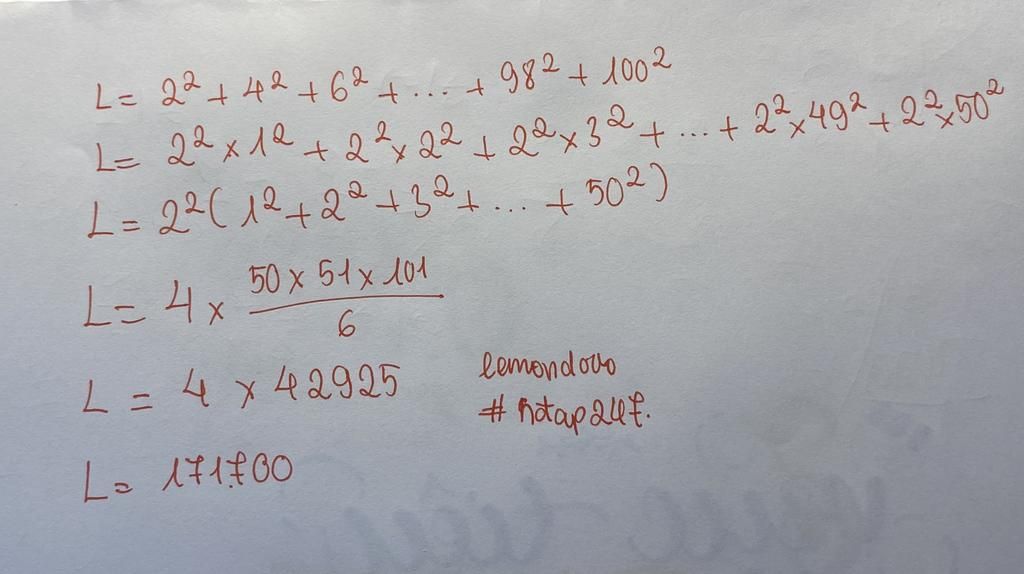 L = 2² + 4² + 6² + ... + 98² + 100²
L = 2² × 1² + 2² × 2² + 2² × 3² + ... + 2² × 49² + 2² × 50²
L = 2² ( 1² + 2² + 3² + ... + 50² )
L = 4 × (50 × 51 × 101) / 6
L = 4 × 42925
lemondovo
# hotap247.
L = 171.700